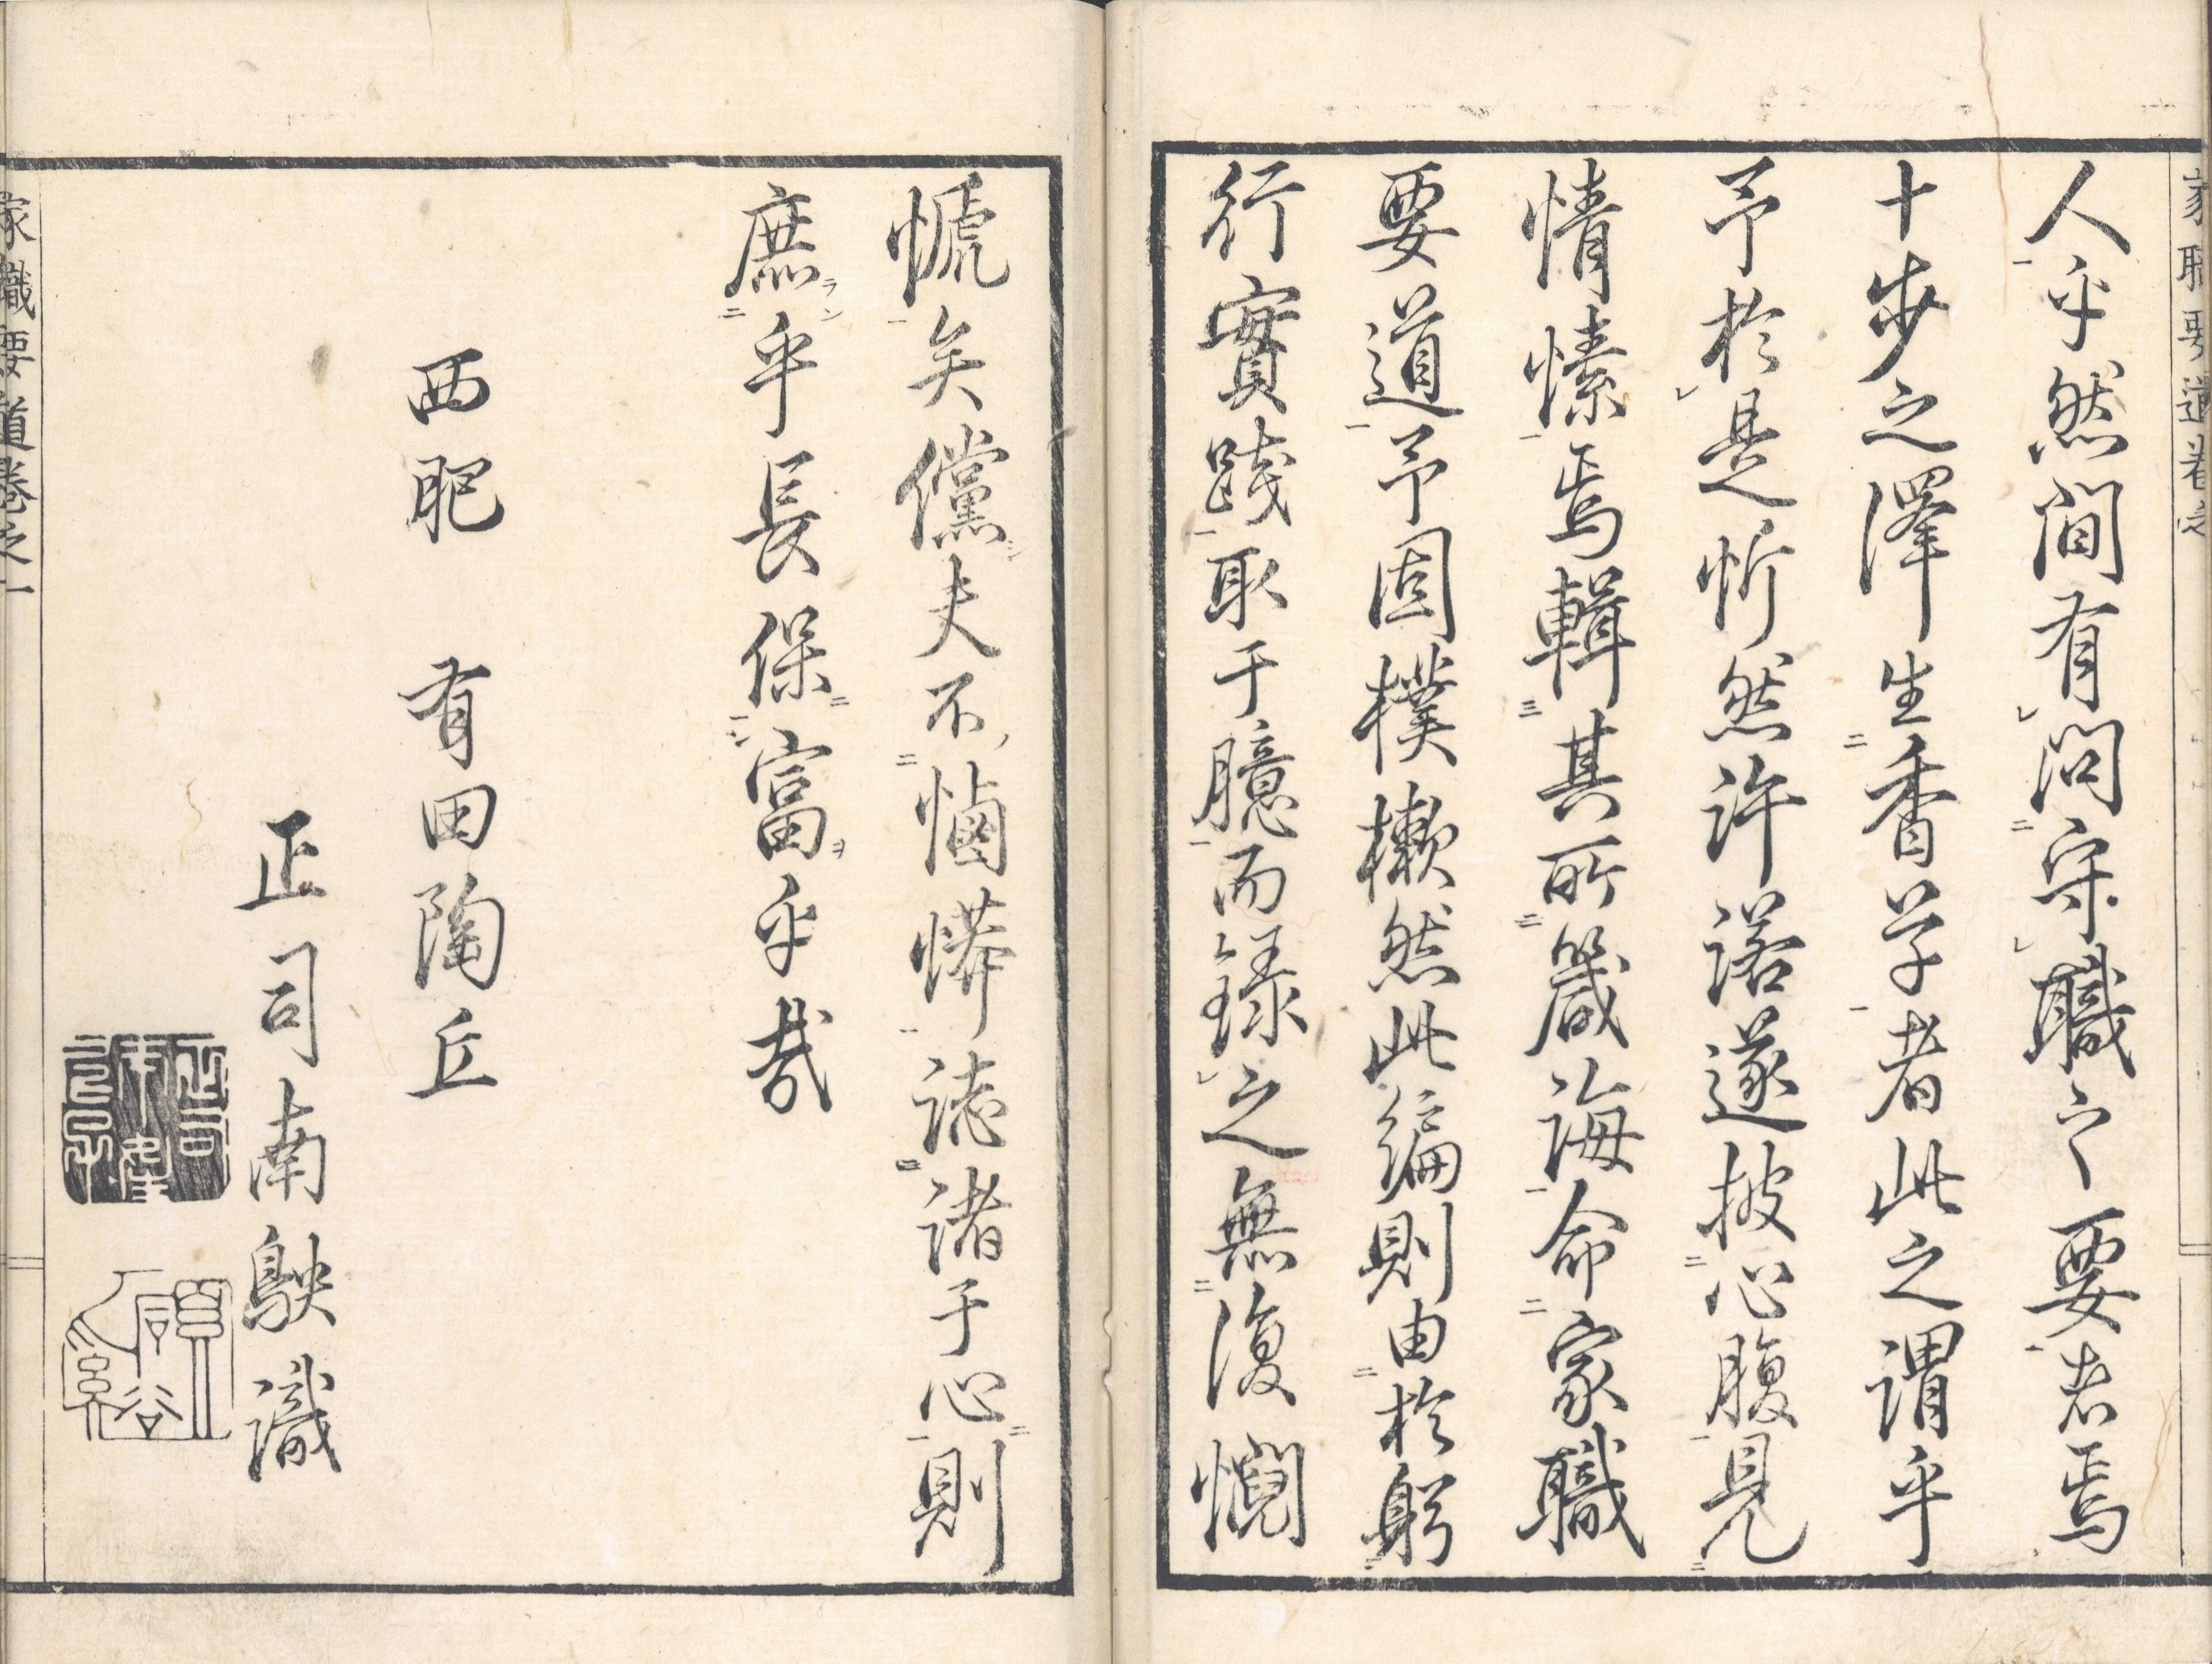 家職要道卷之
人乎然間有問守職之要者焉
十步之澤生香草者此之謂乎
予於是忻然許諾遂披心腹見
情愫焉輯其所箴誨命家職
要道予固樸樕然此編則由於躬
行實踐取于臆而録之無復
矣儻夫不誌諸于心則
庶乎長保富乎哉
西肥 有田陶丘
正司南鴃識
家職要道卷之一